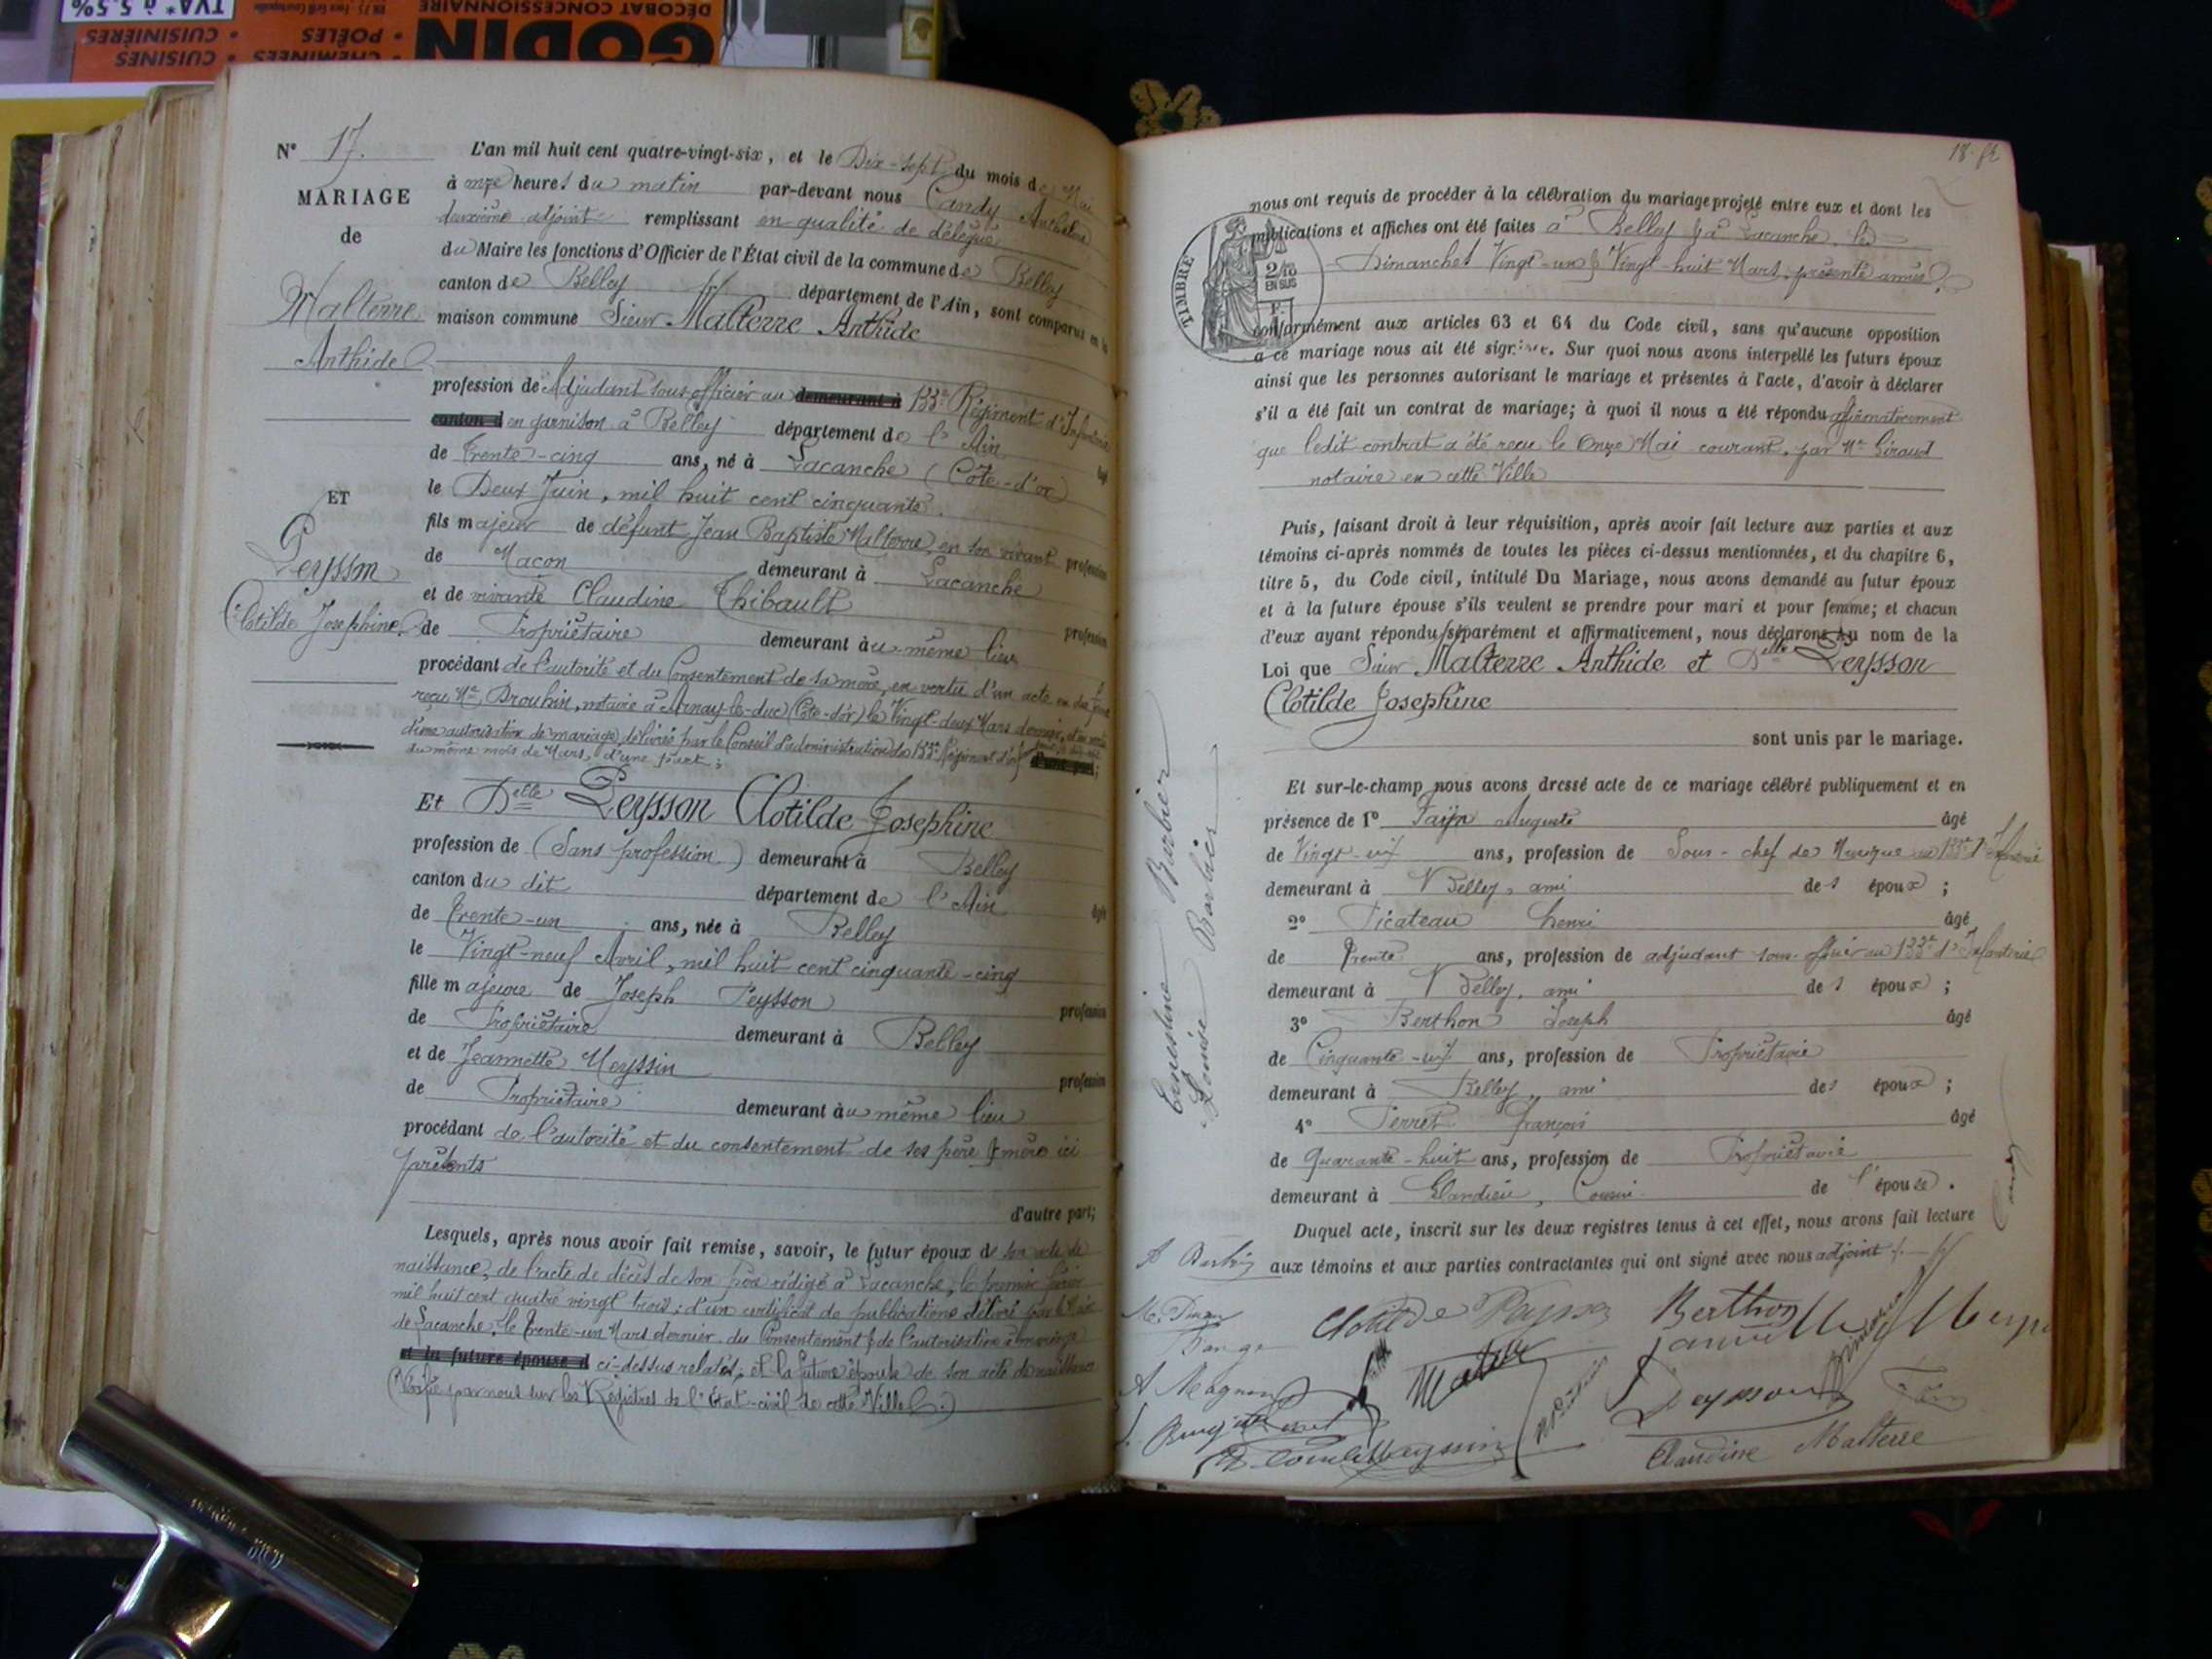 DÉCOBAT CONCESSIONNAIRE
GODIN
CHEMINÉES • CUISINES
• POÊLES • CUISINIÈRES
TVA* à 5.5%
N° 17.
MARIAGE
de
Malterre
Anthide
ET
Peysson
Clotilde Josephine
L'an mil huit cent quatre-vingt-six, et le Dix-sept du mois de Mai
à onze heures du matin par-devant nous Candy Anthelme
deuxième adjoint remplissant en qualité de délégué
du Maire les fonctions d'Officier de l'État civil de la commune de Belley
canton de Belley département de l'Ain, sont comparus en la
maison commune Sieur Malterre Anthide
profession de Adjudant sous-officier au demeurant à 133e Régiment d'Infanterie
canton d en garnison à Belley département de l'Ain
de Trente-cinq ans, né à Lacanche (Côte-d'or) âgé
le Deux Juin, mil huit cent cinquante
fils majeur de défunt Jean Baptiste Malterre, en son vivant profession
de Maçon demeurant à Lacanche
et de vivante Claudine Thibault profession
de Propriétaire demeurant au même lieu
procédant de l'autorité et du Consentement de sa mère, en vertu d'un acte en due forme
reçu Me Drouhin, notaire à Arnay-le-duc (Côte-d'or) le Vingt-deux Mars dernier, et en vertu
d'une autorisation de mariage délivrée par le Conseil d'administration du 133e Régiment d'Inf
du même mois de Mars, d'une part; d'une part;
Et Delle Peysson Clotilde Josephine
profession de (Sans profession) demeurant à Belley
canton du dit département de l'Ain âgée
de Trente-un ans, née à Belley
le Vingt-neuf Avril, mil huit cent cinquante-cinq
fille majeure de Joseph Peysson profession
de Propriétaire demeurant à Belley
et de Jeannette Meyssin profession
de Propriétaire demeurant au même lieu
procédant de l'autorité et du consentement de ses père & mère ici
présents
d'autre part;
Lesquels, après nous avoir fait remise, savoir, le futur époux de son acte de
naissance, de l'acte de décès de son père rédigé à Lacanche, le premier
mil huit cent quatre vingt trois; d'un certificat de publications délivré par le Maire
de Lacanche, le Trente-un Mars dernier, du Consentement & de l'autorisation à mariage
et la future épouse d ci-dessus relatés; et la future épouse de son acte de naissance
(Vérifié par nous sur les Registres de l'État-civil de cette Ville.)
18-
nous ont requis de procéder à la célébration du mariage projeté entre eux et dont les
publications et affiches ont été faites à Belley & à Lacanche, les
Dimanches Vingt-un & Vingt-huit Mars, présente année,
TIMBRE
2/10
EN SUS
conformément aux articles 63 et 64 du Code civil, sans qu'aucune opposition
à ce mariage nous ait été signifiée. Sur quoi nous avons interpellé les futurs époux
ainsi que les personnes autorisant le mariage et présentes à l'acte, d'avoir à déclarer
s'il a été fait un contrat de mariage; à quoi il nous a été répondu affirmativement
que ledit contrat a été reçu le Onze Mai courant, par Me Giraud
notaire en cette Ville
Puis, faisant droit à leur réquisition, après avoir fait lecture aux parties et aux
témoins ci-après nommés de toutes les pièces ci-dessus mentionnées, et du chapitre 6,
titre 5, du Code civil, intitulé Du Mariage, nous avons demandé au futur époux
et à la future épouse s'ils veulent se prendre pour mari et pour femme; et chacun
d'eux ayant répondu séparément et affirmativement, nous déclarons au nom de la
Loi que Sieur Malterre Anthide et Delle Peysson
Clotilde Josephine
sont unis par le mariage.
Et sur-le-champ nous avons dressé acte de ce mariage célébré publiquement et en
présence de 1° Auguste âgé
de Vingt-neuf ans, profession de Sous-chef de Musique au 133e d'Infanterie
demeurant à Belley, ami des époux;
2° Picateau henri âgé
de Trente ans, profession de adjudant sous-officier au 133e d'Infanterie
demeurant à Belley, ami des époux;
3° Berthon Joseph âgé
de Cinquante-neuf ans, profession de Propriétaire
demeurant à Belley, ami des époux;
4° Perret François âgé
de Quarante-huit ans, profession de Propriétaire
demeurant à Glandieu, Cousin de l'épouse.
Duquel acte, inscrit sur les deux registres tenus à cet effet, nous avons fait lecture
aux témoins et aux parties contractantes qui ont signé avec nous adjoint
Ernestine Barbier
Louise Barbier
Candy
Clotilde Peysson
Berthon
A Magnin
Peysson
Claudine Malterre